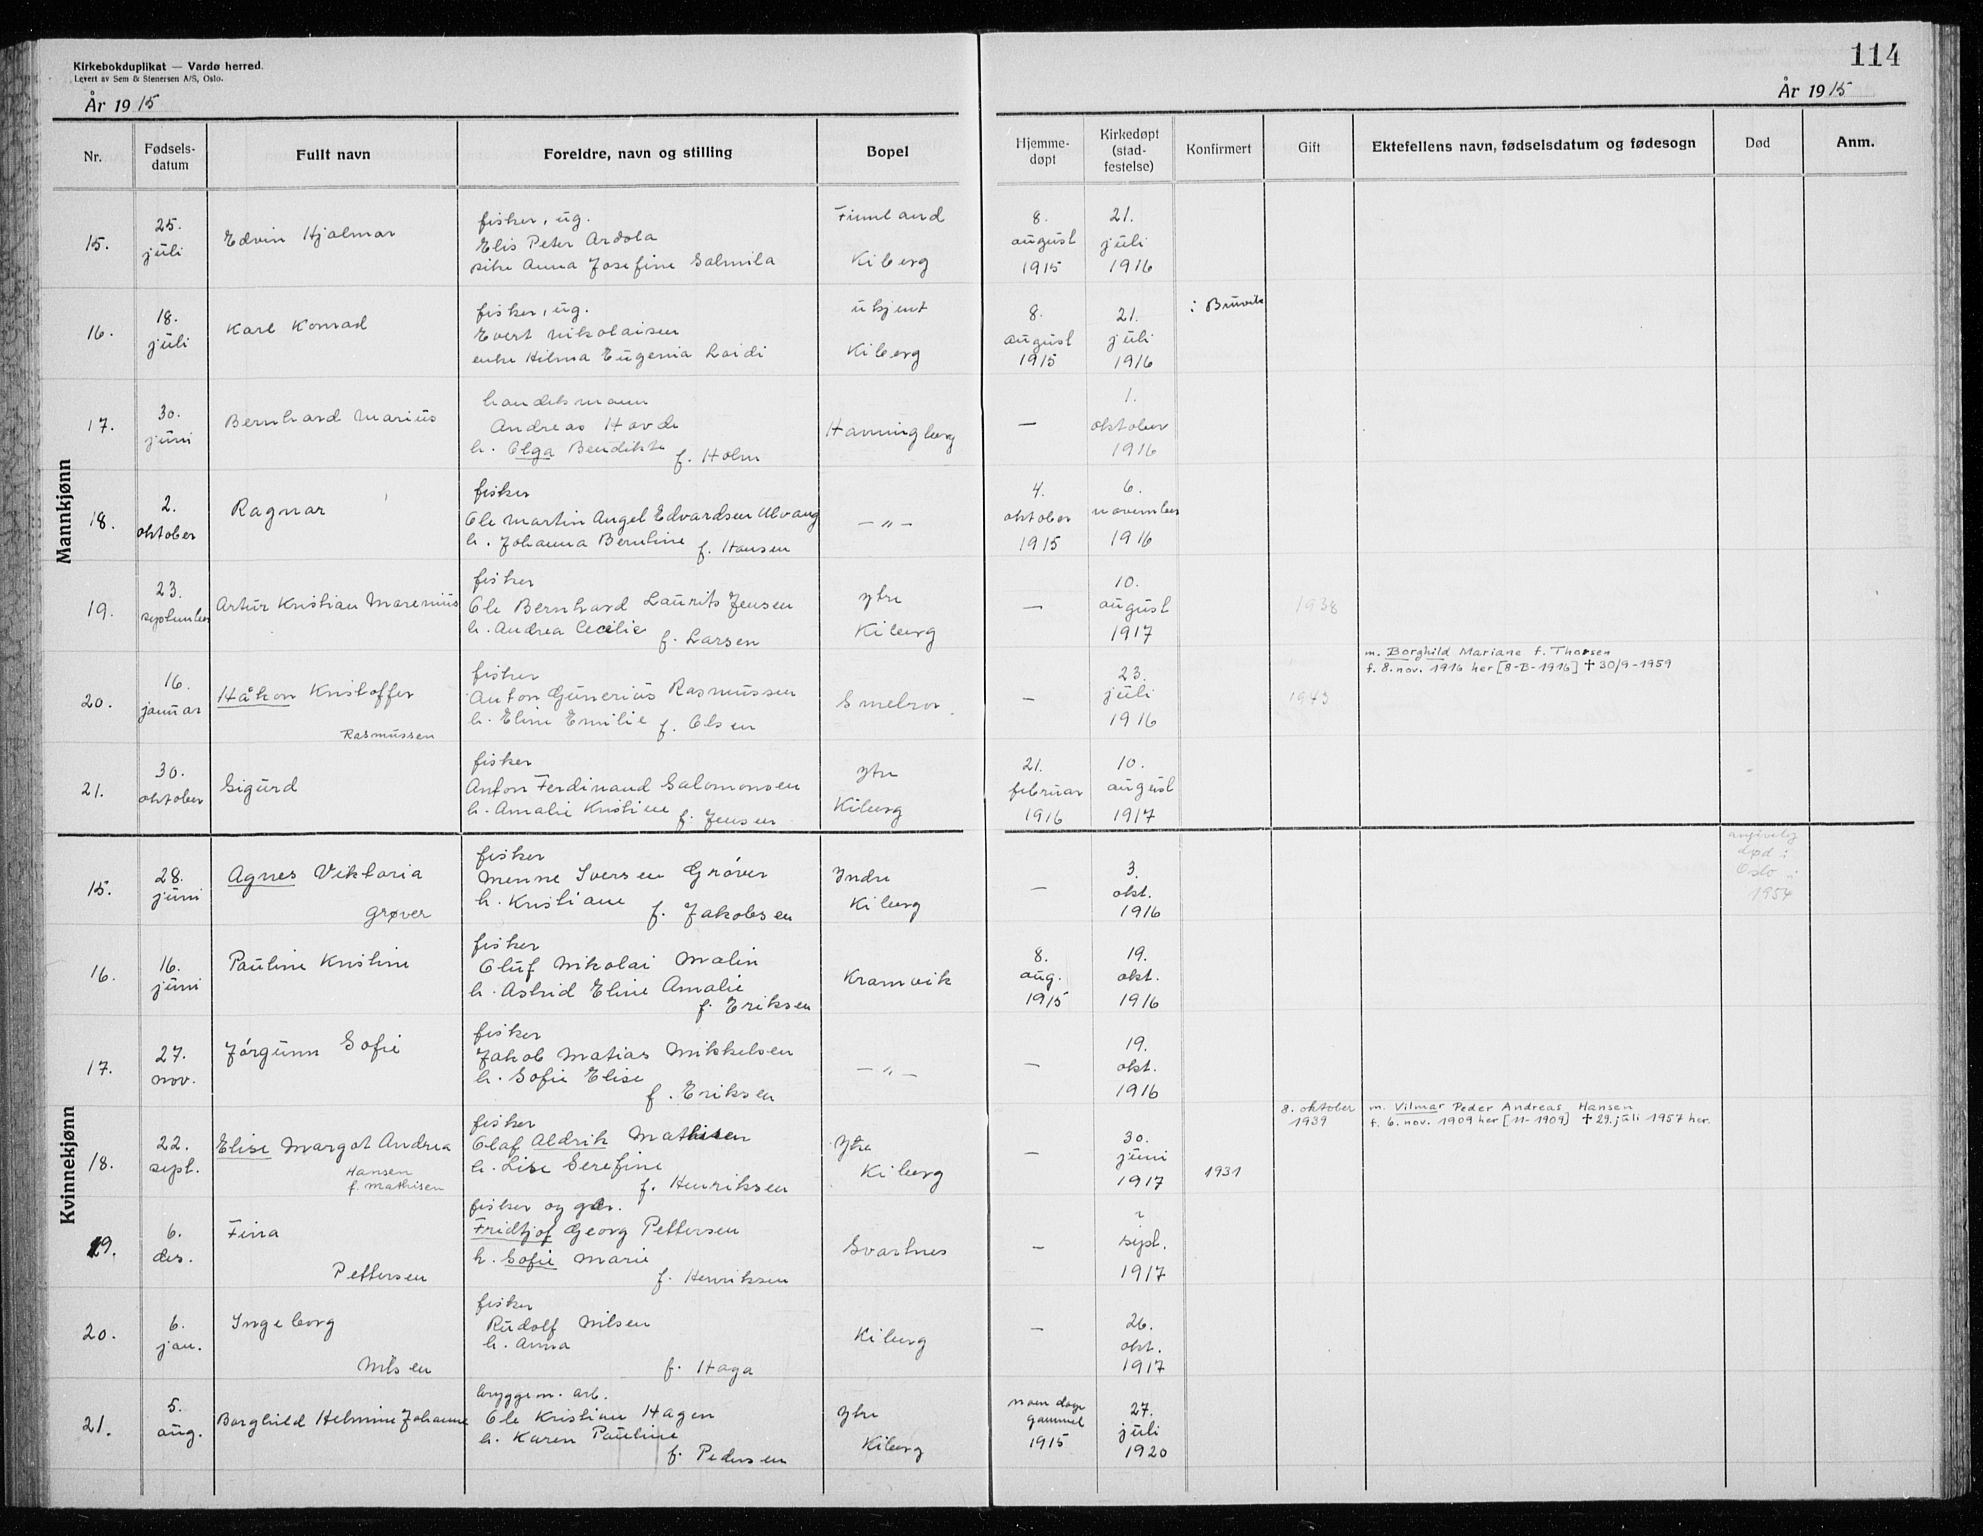 Kirkebokduplikat — Vardø herred.
Levert av Sem & Stenersen A/S, Oslo.
114
År 1915
År 1915
Nr.
Fødsels-
datum
Fullt navn
Foreldre, navn og stilling
Bopel
Hjemme-
døpt
Kirkedøpt
(stad-
festelse)
Konfirmert
Gift
Ektefellens navn, fødselsdatum og fødesogn
Død
Anm.
Mannkjønn
15.
25.
juli
Edvin Hjalmar
fisker, ug.
Elis Peter Ardola
pike Anna Josefine Salmila
Finnland
Kiberg
8.
august
1915
21.
juli
1916
16.
18.
juli
Karl Konrad
fisker, ug.
Evert Nikolaisen
enke Hilma Eugenia Laidi
ukjent
Kiberg
8.
august
1915
21.
juli
1916
i Bruvik
17.
30.
juni
Bernhard Marius
handelsmann
Andreas Hovde
h. Olga Bendikte
f. Holm
Havningberg
—
1.
oktober
1916
18.
2.
oktober
Ragnar
fisker
Ole Martin Angel Edvardsen Ulvang
h. Johanna Berntine
f. Hansen
— " —
4.
oktober
1915
6.
november
1916
19.
23.
september
Artur Kristian Marenius
fisker
Ole Bernhard Laurits Jensen
h. Andrea Cecilie
f. Larsen
Ytre
Kiberg
—
10.
august
1917
1938
20.
16.
januar
Håkon Kristoffer
Rasmussen
fisker
Anton Gunerius Rasmussen
h. Eline Emilie
f. Olsen
Smelror.
—
23.
juli
1916
1943
m. Borghild Mariane f. Thorsen
f. 8. nov. 1916 her [8-B-1916] † 30/9-1959
21.
30.
oktober
Sigurd
fisker
Anton Ferdinand Salomonsen
h. Amalie Kristine
f. Jensen
Ytre
Kiberg
21.
februar
1916
10.
august
1917
Kvinnekjønn
15.
28.
juni
Agnes Viktoria
Grøver
fisker
Menne Iversen Grøver
h. Kristiane
f. Jakobsen
Yndre
Kiberg
—
3.
okt.
1916
angivelig
død i
Oslo i
1954
16.
16.
juni
Pauline Kristine
fisker
Oluf Nikolai Malin
h. Astrid Eline Amalie
f. Eriksen
Kramvik
8.
aug.
1915
19.
okt.
1916
17.
27.
nov.
Jørgunn Sofie
fisker
Jakob Matias Mikkelsen
h. Sofie Elise
f. Eriksen
— " —
—
19.
okt.
1916
18.
22.
sept.
Elise Margot Andrea
Hansen
f. Mathisen
fisker
Olaf Aldrik Mathisen
h. Lise Serefine
f. Henriksen
Ytre
Kiberg
—
30.
juni
1917
1931
8. oktober
1939
m. Vilmar Peder Andreas Hansen
f. 6. nov. 1909 her [11-1909] † 29. juli 1957 her.
19.
6.
des.
Fina
Pettersen
fisker og gdr.
Fridtjof Georg Pettersen
h. Sofie Marie
f. Henriksen
Svartnes
—
2
sept.
1917
20.
6.
jan.
Ingeborg
Nilsen
fisker
Rudolf Nilsen
h. Anna
f. Haga
Kiberg
—
26.
okt.
1917
21.
5.
aug.
Borghild Helmine Johanne
bryggem. arb.
Ole Kristian Hagen
h. Karen Pauline
f. Pedersen
Ytre
Kiberg
noen dage
gammel
1915
27.
juli
1920